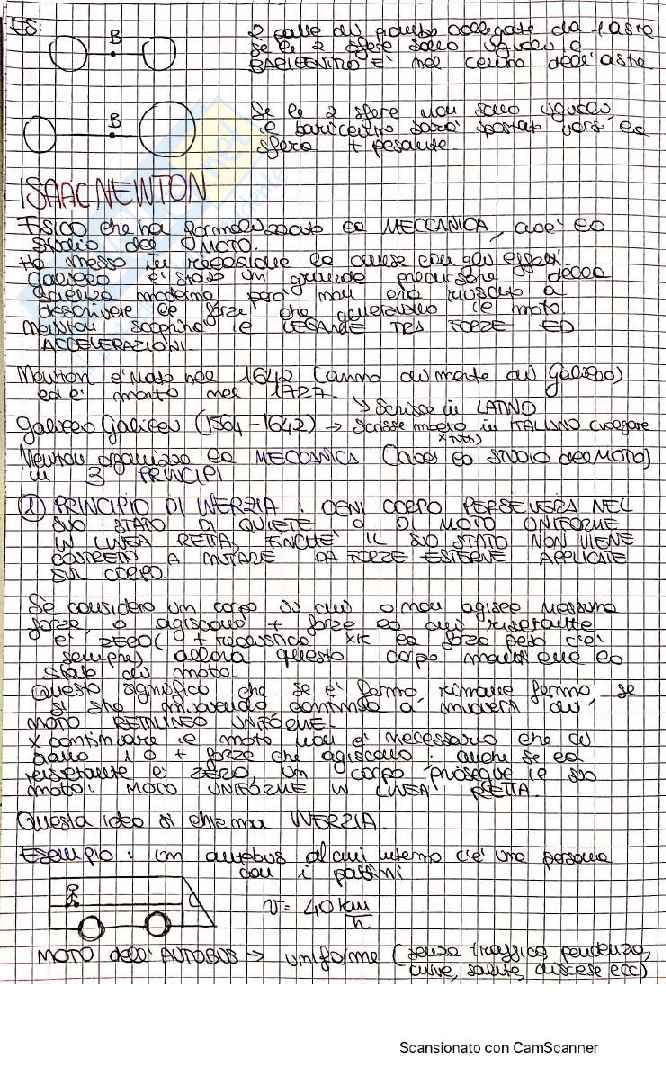 ES:
2 palle di piombo collegate da 1 asta
Se le 2 sfere sono uguali il
BARICENTRO È nel centro dell'asta
B
Se le 2 sfere non sono uguali
il baricentro sarà spostato verso la
sfera + pesante.
B
ISAAC NEWTON
FISICO che ha formalizzato la MECCANICA, cioè lo
studio del MOTO.
Ha messo in relazione le cause con gli effetti.
Galileo è stato un grande precursore della
scienza moderna però mai era riuscito a
descrivere le forze che generavano il moto.
Newton scoprirà il LEGAME TRA FORZE ED
ACCELERAZIONI.
Newton è nato nel 1642 (anno di morte di Galileo)
ed è morto nel 1727.
↘ Scrisse in LATINO
Galileo Galilei (1564-1642) → Scrisse invece in ITALIANO volgare
x tutti
Newton organizzò la MECCANICA (cioè lo STUDIO del MOTO)
in 3 PRINCIPI
PRINCIPIO DI INERZIA: OGNI CORPO PERSEVERA NEL
SUO STATO DI QUIETE O DI MOTO UNIFORME
IN LINEA RETTA, FINCHÈ IL SUO STATO NON VIENE
COSTRETTO A MUTARE DA FORZE ESTERNE APPLICATE
SUL CORPO
Se considero un corpo su cui o non agisce nessuna
forza, o agiscono + forze la cui risultante
è zero ( + realistico xk la forza peso c'è
sempre) allora questo corpo mantiene lo
stato di moto.
Questo significa che se è fermo, rimane fermo, se
si sta muovendo continua a muoversi di
MOTO RETTILINEO UNIFORME.
X continuare il moto non è necessario che ci
siano 1 o + forze che agiscano: anche se la
risultante è zero, un corpo prosegue il suo
moto: MOTO UNIFORME IN LINEA RETTA.
Questa idea si chiama INERZIA.
Esempio: un autobus al cui interno c'è una persona
con i pattini
V = 40 km/h
MOTO dell'AUTOBUS → uniforme (senza traffico, pendenza,
curve, salite, discese ecc)
Scansionato con CamScanner